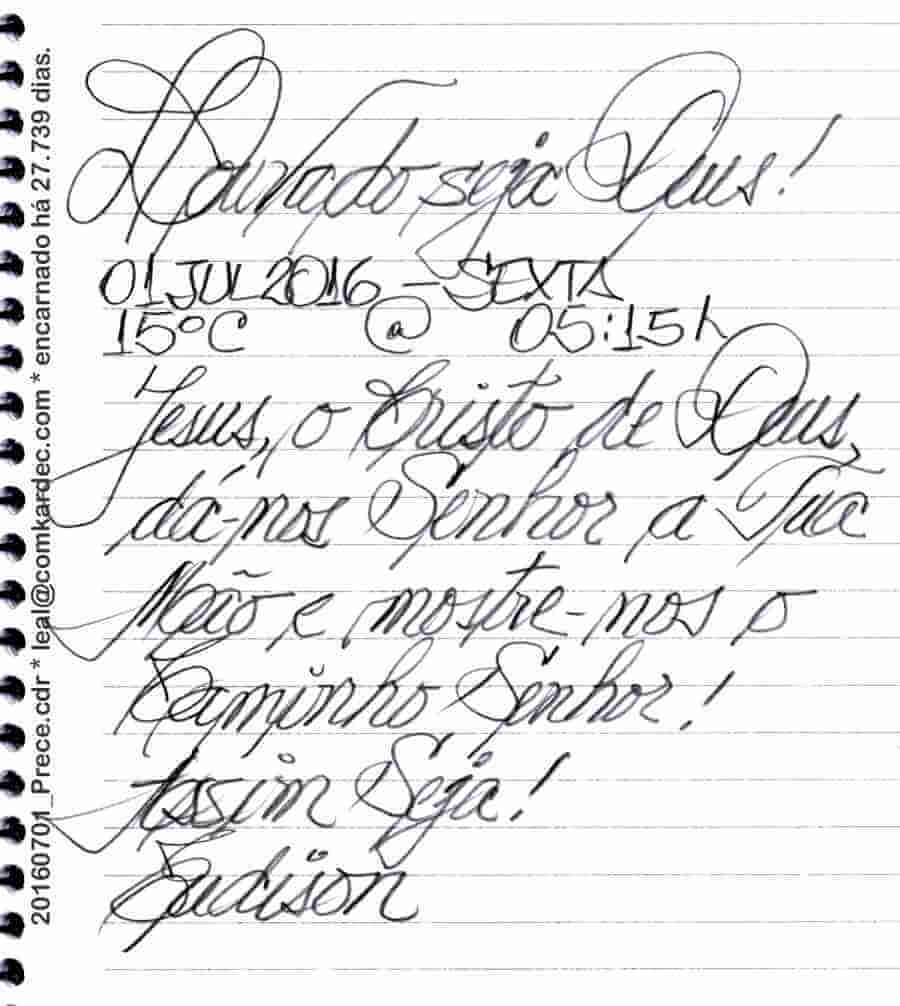 Louvado seja Deus!
01 JUL 2016 - SEXTA
15ºC @ 05:15h
Jesus, o Cristo de Deus,
dá-nos Senhor a Tua
Mão e mostre-nos o
Caminho Senhor!
Assim Seja!
Eudison
20160701_Prece.cdr * leal@comkardec.com * encarnado há 27.739 dias.